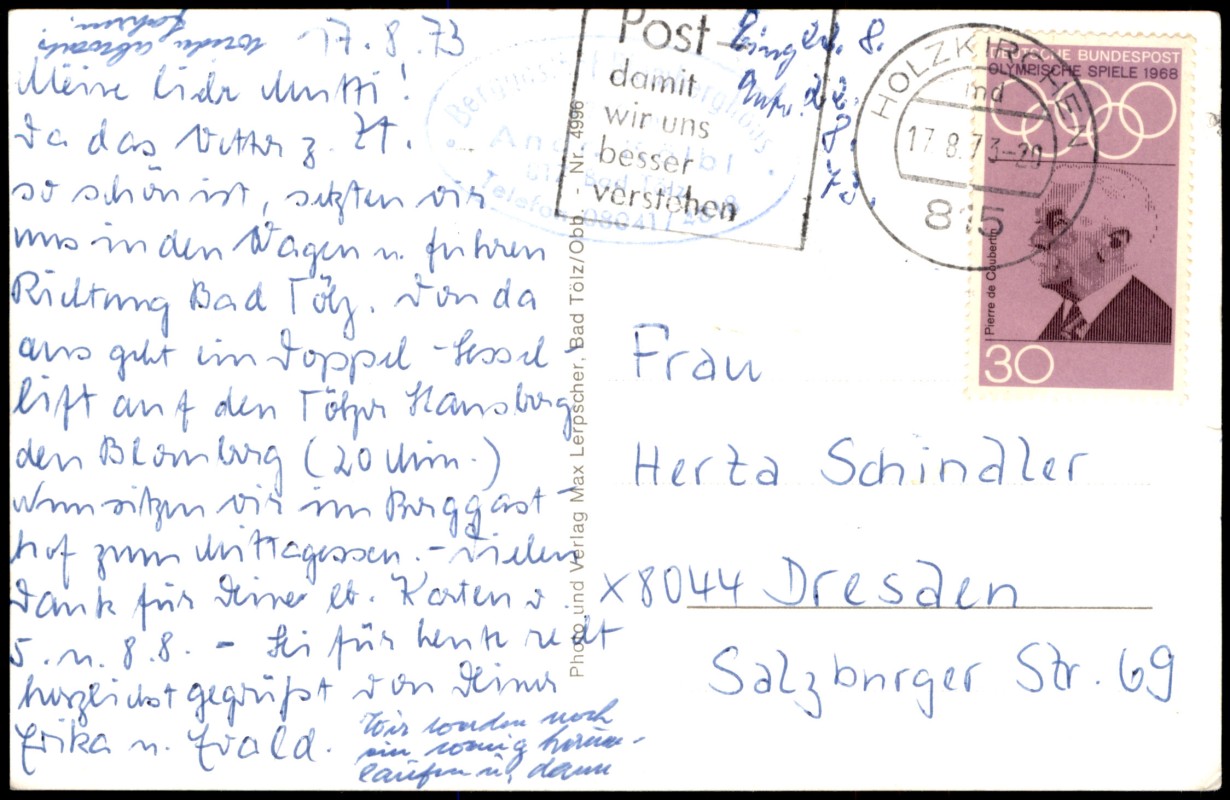 17.8.73
Meine liebe Mutti!
Da das Wetter z. Zt.
so schön ist, setzten wir
uns in den Wagen u. fuhren
Richtung Bad Tölz. Von da
aus geht ein Doppel-Sessel-
lift auf den Tölzer Hausberg
den Blomberg (20 Min.)
Nun sitzen wir im Berggast-
hof zum Mittagessen. - Vielen
Dank für Deine lb. Karten v.
5. u. 8.8. - Sei für heute recht
herzlichst gegrüßt von Deinen
Erika u. Ewald.
Wir werden noch
ein wenig herum-
laufen u. dann
wieder abwärts
fahren.
Photo und Verlag Max Lerpscher, Bad Tölz/Obb. Nr. 4996
Telefon 08041/
Post
damit
wir uns
besser
verstehen
Eing. 21. 8.
Antw. 22.
8.
73.
HOLZKIRCHEN
17.8.73-20
815
DEUTSCHE BUNDESPOST
OLYMPISCHE SPIELE 1968
Pierre de Coubertin
30
Frau
Herta Schindler
X8044 Dresden
Salzburger Str. 69